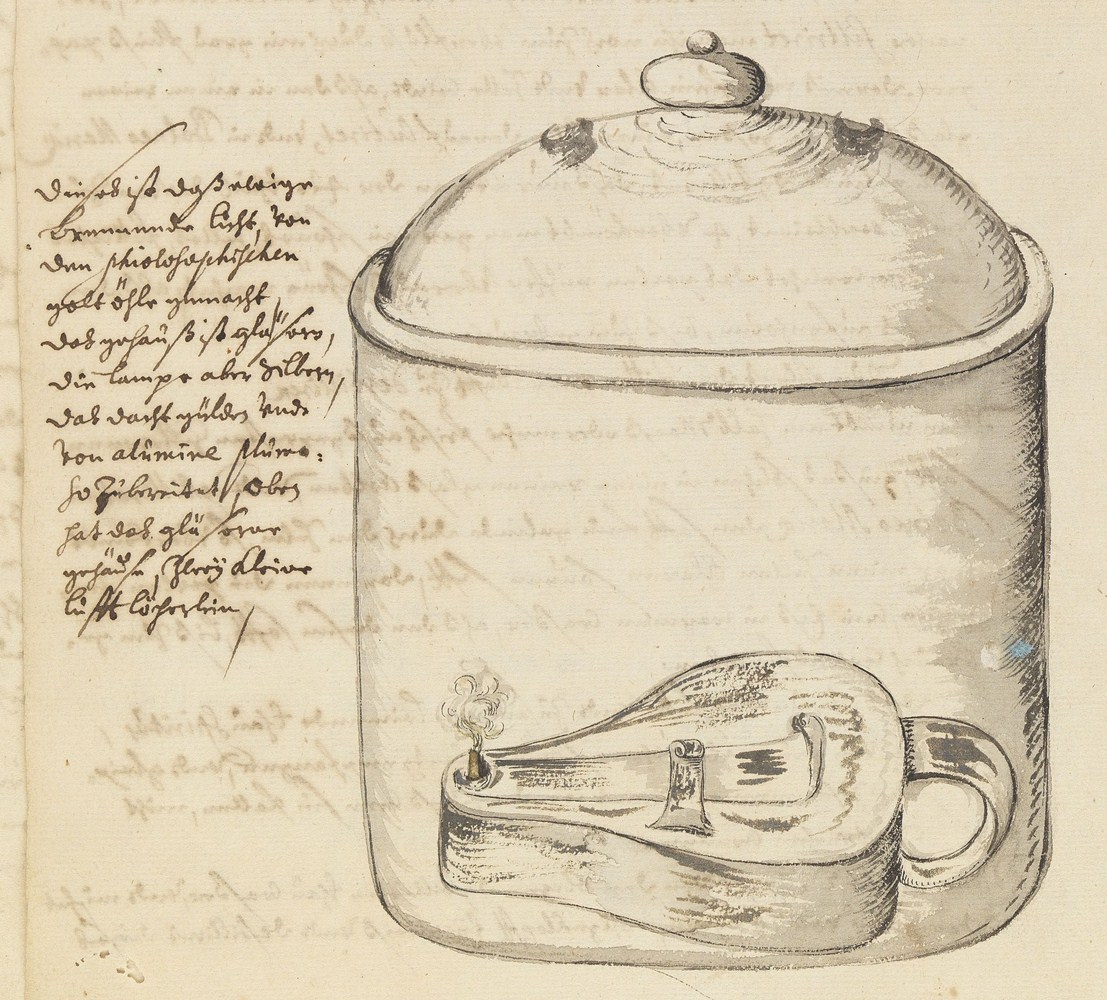 Dieses ist daß ewige
brennende licht, von
den phiolosophischen
golt öhle gemacht,
das gehäuß ist gläsern,
die lampe aber Silbern,
das dacht gülden vnd
von alumine plumo:
so Zubereitet, oben
hat das gläserne
gehäuse, Zweÿ kleine
lufft löcherlein,